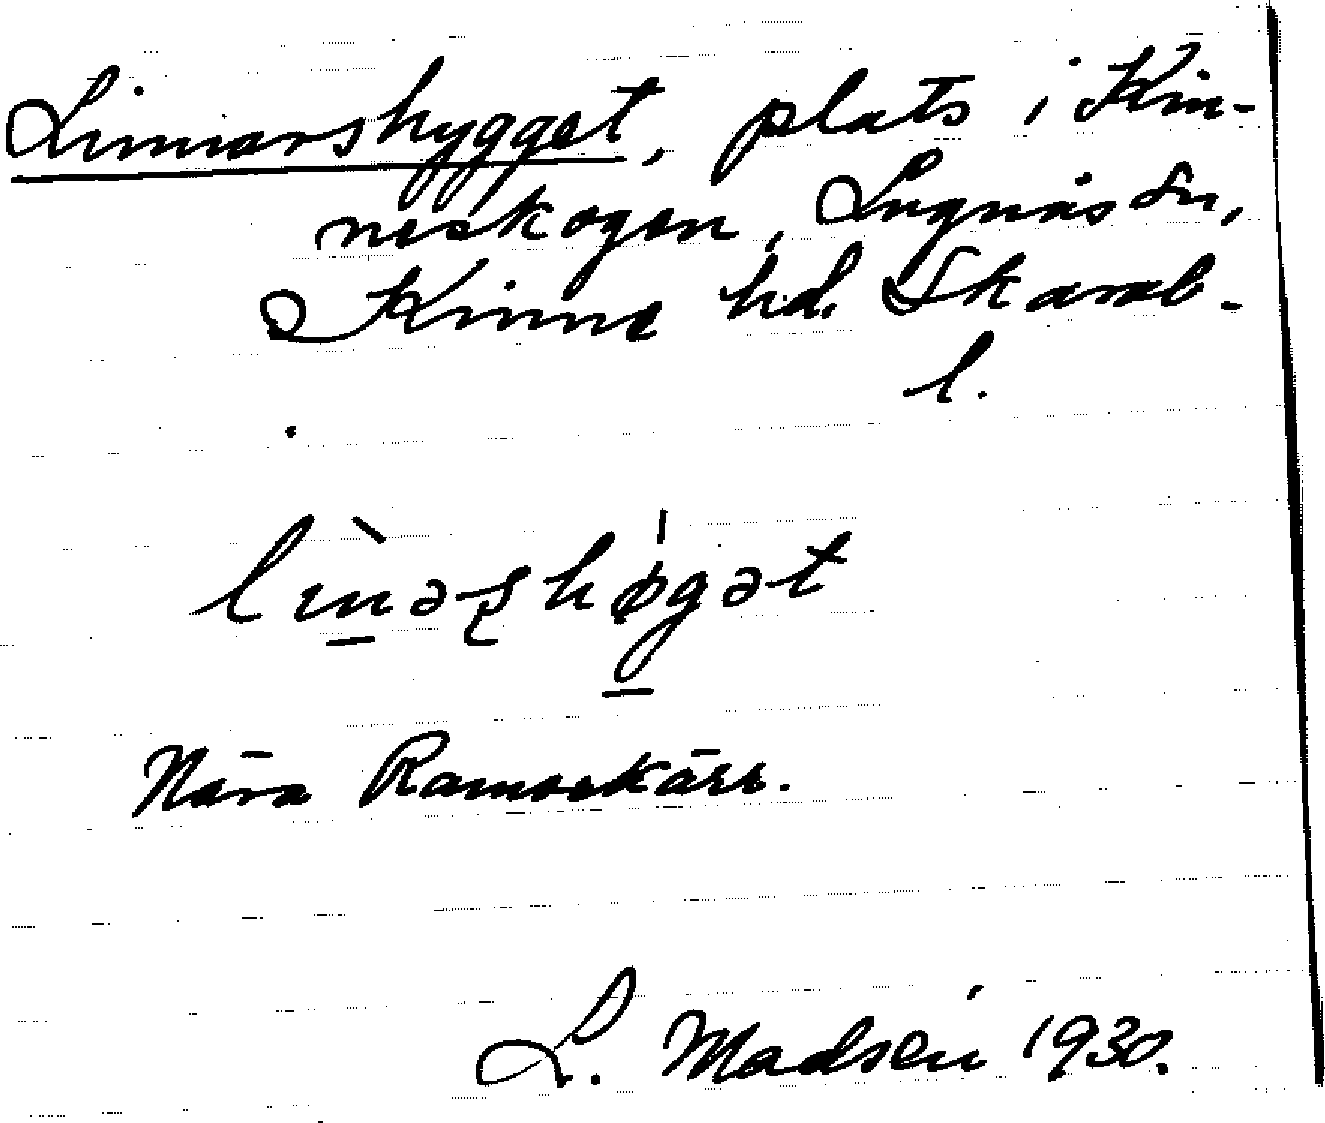 Linnarshygget, plats i Kin-
neskogen, Lugnås sn,
Kinne hd. Skarab-
l.
lìnəʂhøgət
Nära Ramsekärr.
L. Madsén 1930.